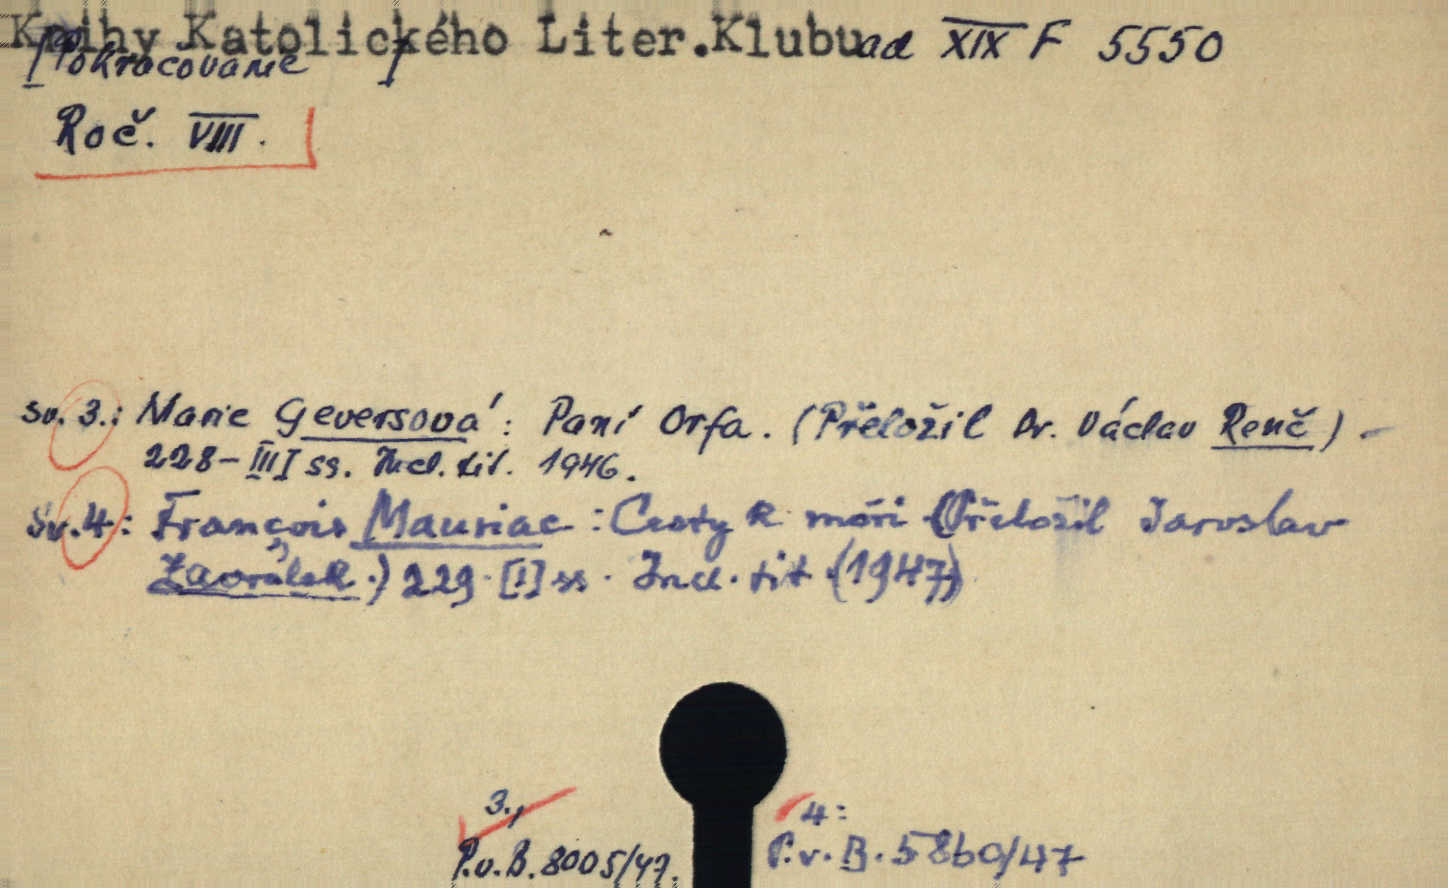 Knihy Katolického Liter.Klubu ad XIX F 5550
[Pokračovanie]
Roč. VIII.
sv. 3.: Marie Geversová: Paní Orfa. (Přeložil Dr. Václav Renč) -
228-[III] ss. Incl. tit. 1946.
Sv. 4.: François Mauriac: Cesty k moři (Přeložil Jaroslav
Zaorálek.) 229.[I] ss. Incl. tit. (1947)
3.,
4:
P.v.B. 8005/47.
P.v.B. 5860/47